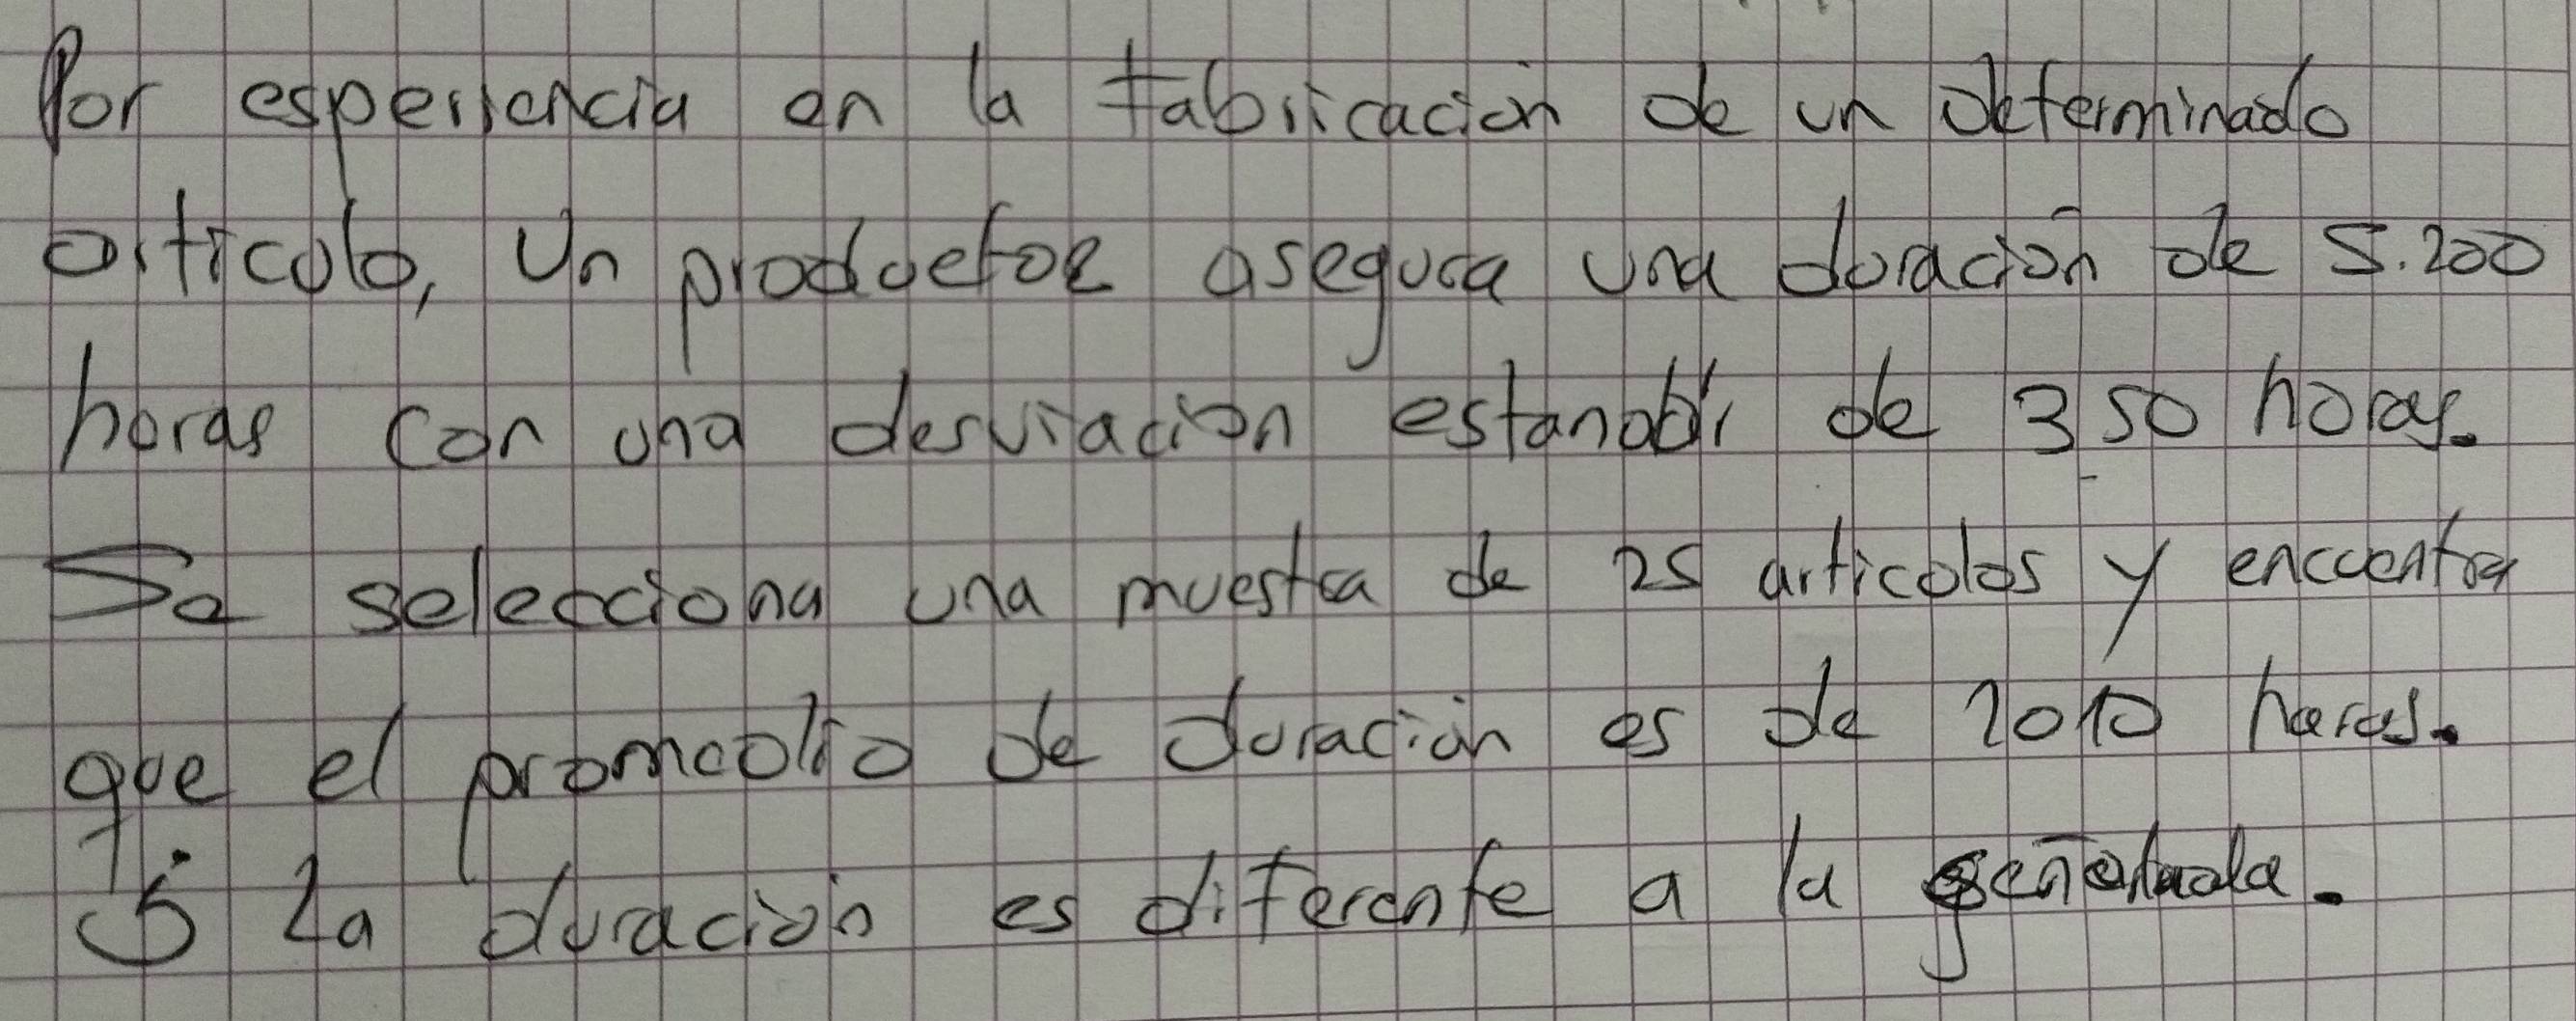 Por esperiencia en la fabricación de un determinado
articulo, Un productor asegura una duración de 5.200
horas con una desviación estandar de 350 horas.
Se selecciona una muestra de 25 articolos y encuentra
que el promedio de duración es de 2010 horas.
Si La duración es diferente a la señalada.